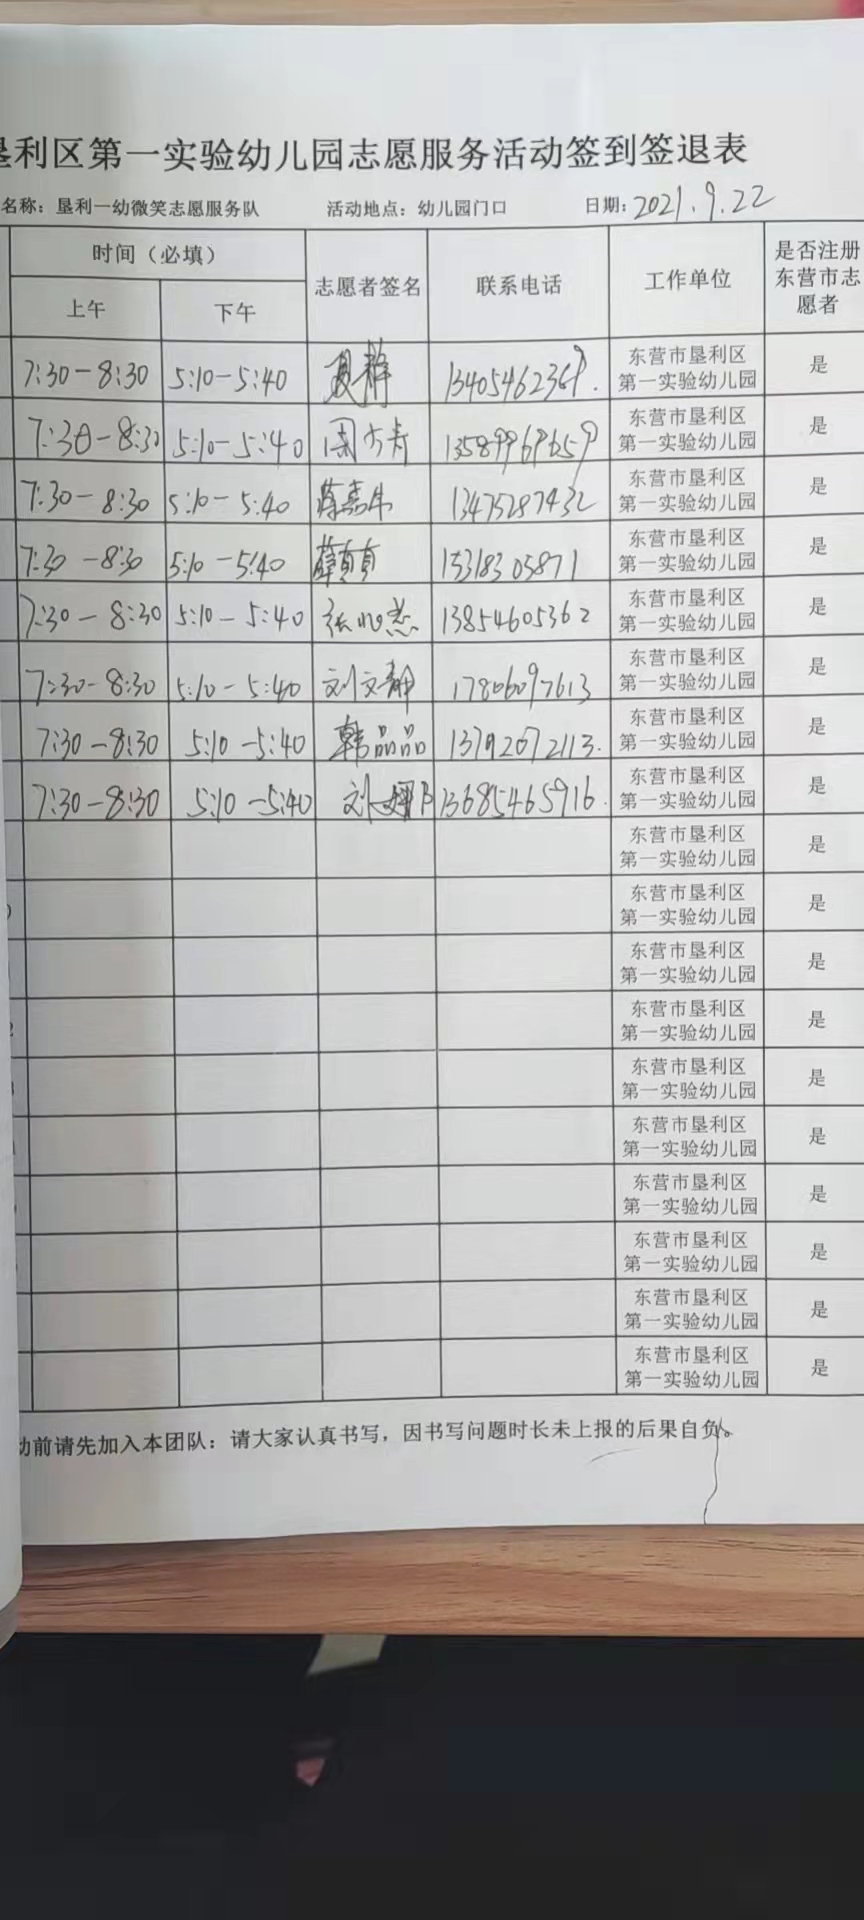 垦利区第一实验幼儿园志愿服务活动签到签退表
名称：垦利一幼微笑志愿服务队 活动地点：幼儿园门口 日期：2021.9.22
时间（必填） 志愿者签名 联系电话 工作单位 是否注册东营市志愿者
上午 下午
7:30-8:30 5:10-5:40 夏静 13405462369. 东营市垦利区第一实验幼儿园 是
7:30-8:30 5:10-5:40 周方青 东营市垦利区第一实验幼儿园 是
7:30-8:30 5:10-5:40 13475287432 东营市垦利区第一实验幼儿园 是
7:30-8:30 5:10-5:40 薛真真 15318305871 东营市垦利区第一实验幼儿园 是
7:30-8:30 5:10-5:40 13854605362 东营市垦利区第一实验幼儿园 是
7:30-8:30 5:10-5:40 刘文静 17806097613 东营市垦利区第一实验幼儿园 是
7:30-8:30 5:10-5:40 韩品品 13792072113. 东营市垦利区第一实验幼儿园 是
7:30-8:30 5:10-5:40 13685465916. 东营市垦利区第一实验幼儿园 是
东营市垦利区第一实验幼儿园 是
东营市垦利区第一实验幼儿园 是
东营市垦利区第一实验幼儿园 是
东营市垦利区第一实验幼儿园 是
东营市垦利区第一实验幼儿园 是
东营市垦利区第一实验幼儿园 是
东营市垦利区第一实验幼儿园 是
东营市垦利区第一实验幼儿园 是
东营市垦利区第一实验幼儿园 是
东营市垦利区第一实验幼儿园 是
动前请先加入本团队：请大家认真书写，因书写问题时长未上报的后果自负。